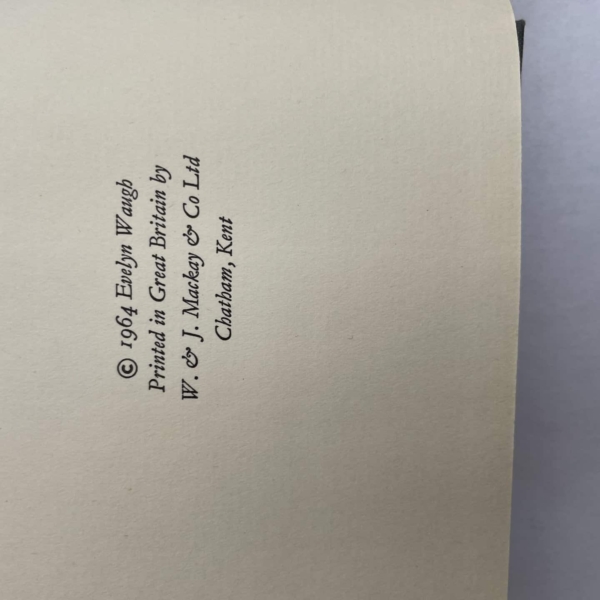 © 1964 Evelyn Waugh
Printed in Great Britain by
W. & J. Mackay & Co Ltd
Chatham, Kent